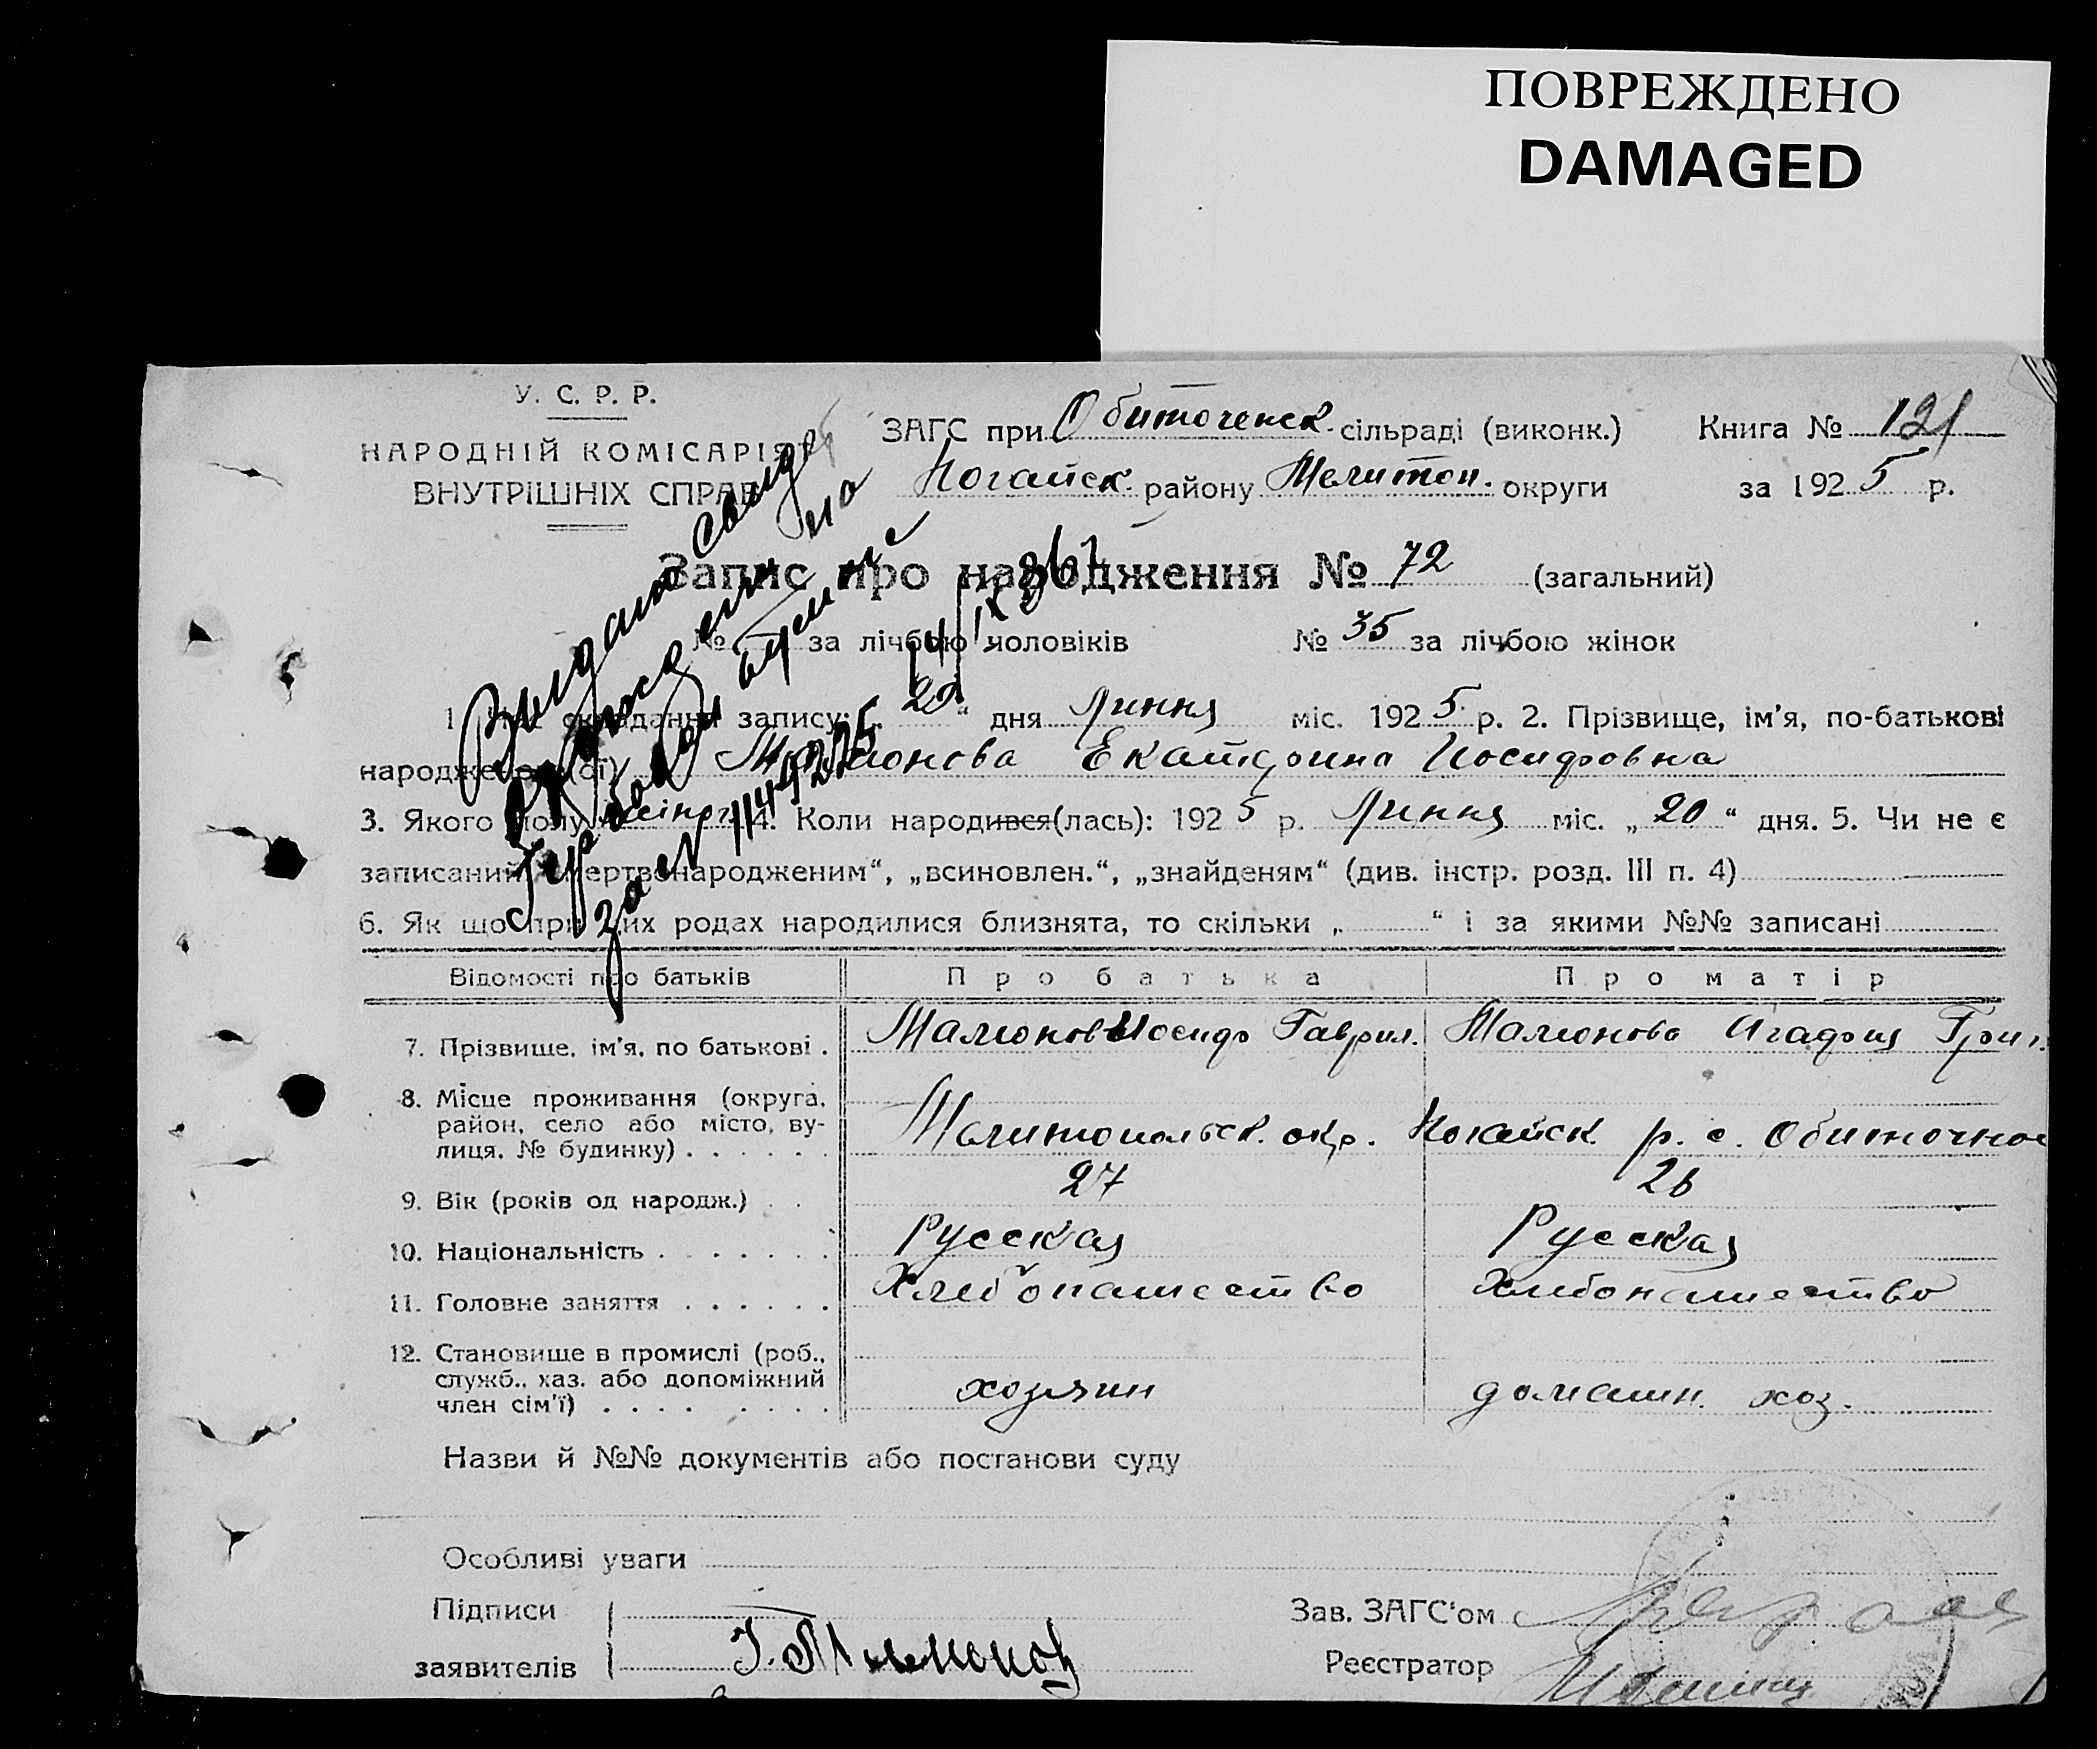 ПОВРЕЖДЕНО
DAMAGED
У. С. Р. Р.
НАРОДНІЙ КОМІСАРІЯТ
ВНУТРІШНІХ СПРАВ
ЗАГС при Обиточенск. сільраді (виконк.) Книга № 121
Ногайск. району Мелитоп. округи за 1925 р.
Запис про народження № 72 (загальний)
№ — за лічбою чоловіків № 35 за лічбою жінок
1. Час складання запису: „22“ дня Липня міс. 1925 р. 2. Прізвище, ім’я, по-батькові
народженого(ої) Екатерина Иосифовна
3. Якого полу жіноч. 4. Коли народився(лась): 1925 р. Липня міс. „20“ дня. 5. Чи не є
записаний „мертвонародженим“, „всиновлен.“, „знайденям“ (див. інстр. розд. III п. 4)
6. Як що при цих родах народилися близнята, то скільки „ “ і за якими №№ записані
Видано свид
о рождении на
зам
Відомості про батьків Про батька Про матір
7. Прізвище, ім’я, по батькові . Иосиф Гаврил. Агафия Григ.
8. Місце проживання (округа,
район, село або місто, ву-
лиця, № будинку) . . . . . . Мелитопольск. окр. Ногайск р. с. Обиточное
9. Вік (років од народж.) . . 27 26
10. Національність . . . . . . . Русская Русская
11. Головне заняття . . . . . . Хлебопашество Хлебопашество
12. Становище в промислі (роб.,
служб., хаз. або допоміжний
член сім’ї) . . . . . . . . хозяин домашн. хоз.
Назви й №№ документів або постанови суду
Особливі уваги
Підписи
заявителів
Зав. ЗАГС‘ом
Реєстратор